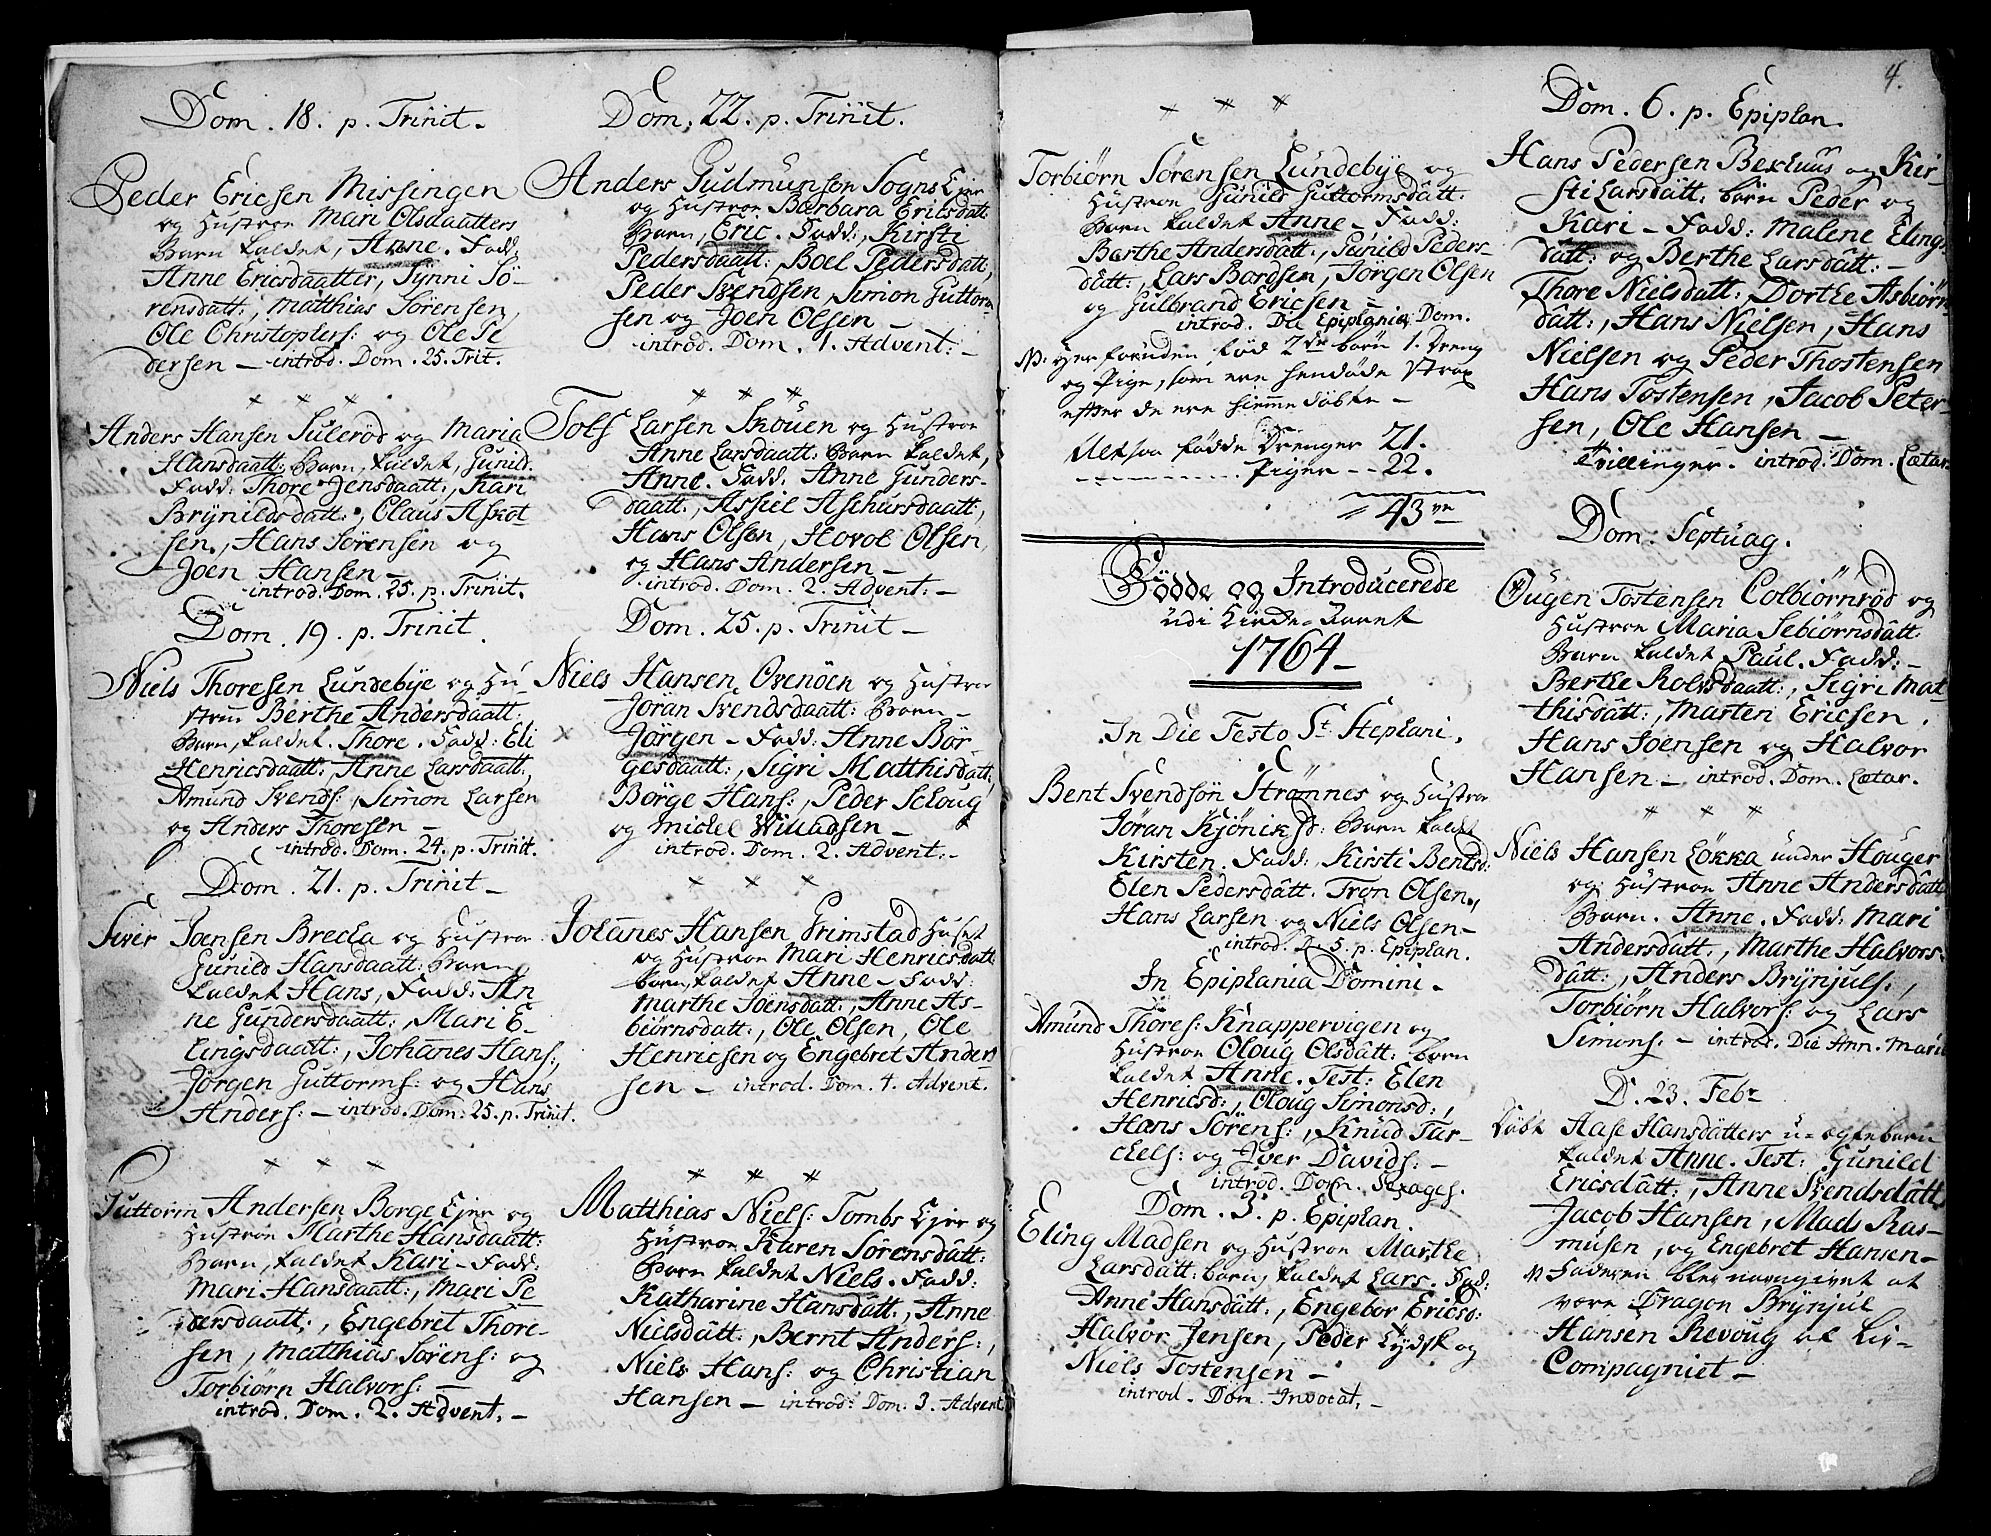 Dom. 18. p. Trinit.
Peder Ericsen Missingen
og Hustroe Mari Olsdaatters
Barn kaldet, Anne. Fadd:
Anne Ericsdaatter, Synni Sö-
rensdatt:, Matthias Sörensen,
Ole Christophers: og Ole Pe
dersen — introd. Dom. 25. Trit.
* * *
Anders Hansen Sulerød og Maria
Hansdaatt: Barn, kaldet, Gunild.
Fadd: Thore Jensdaatt:, Kari
Brÿnildsdatt:, Claus Askot
sen., Hans Sörensen og
Joen Hansen —
introd. Dom. 25. p. Trinit.
Dom. 19. p. Trinit.
Niels Thoresen Lundebÿe og Hu-
stru Berthe Andersdaatt:
Barn, kaldet. Thore. Fadd: Eli
Henricsdaatt:, Anne Larsdaatt:,
Amund Svends:, Simon Larsen
og Anders Thoresen —
introd. Dom. 24. p. Trinit.
Dom. 21. p. Trinit —
Siver Joensen Brecka og Hustroe
Gunild Hansdaatt: Barn
kaldet Hans, Fadd: An
ne Gundersdaatt:, Mari E-
lingsdaatt:, Johannes Hans:,
Jörgen Guttorms: og Hans
Anders: — introd. Dom: 25. p. Trinit.
* * *
Guttorm Andersen Borge Ejer og
Hustroe Marthe Hansdaatt:
Barn, kaldet Kari — Fadd:
Mari Hansdaatt:, Mari Pe
dersdaatt:, Engebret Thore-
sen, Matthias Sörens: og
Torbiørn Halvors: —
introd. Dom. 2. Advent. —
Dom. 22. p. Triit.
Anders Gudmunsen Sogns Ejer
og Hustroe Barbara Ericsdatt:
Barn, Eric. Fadd:, Kirsti
Pedersdaatt:, Boel Pedersdatt,
Peder Svendsen, Simon Guttorm
sen og Joen Olsen —
introd. Dom. 1. Advent: —
* * *
Tolf Larsen Skouen og Hustroe
Anne Larsdaatt: Barn kaldet,
Anne. Fadd: Anne Gunders-
daatt:, Assiel Aschursdaatt:,
Hans Olsen, Hovol Olsen,
og Hans Andersen —
introd. Dom. 2. Advent: —
Dom. 25. p. Trinit —
Niels Hansen Ovenöen og Hustroe
Jöran Svendsdaatt: Barn —
Jörgen — Fadd: Anne Bör-
gesdaatt:, Sigri Matthisdatt:,
Börge Hans:, Peder Schoug
og Michel Willadsen —
introd. Dom. 2. Advent: —
* * *
Johanes Hansen Grimstad Huset
og Hustroe Mari Henricsdatt
Barn, kaldet Anne — Fadd:
Marthe Joensdatt:, Anne As-
biörnsdatt:, Ole Olsen, Ole
Henricsen og Engebret Anders
sen — introd. Dom. 4. Advent.
* * *
Matthias Niels: Tombs Ejer og
Hustroe Karen Sörensdatt:
Barn kaldet Niels. Fadd:
Katharine Hansdatt:, Anne
Nielsdatt:, Bernt Anders:,
Niels Hans: og Christian
Hansen — introd: Dom. 3. Advent
* * *
Torbiørn Sørensen Lundebÿe og
Hustroe Gunild Guttormsdatt:
Barn kaldet Anne — Fadd:
Berthe Andersdatt:, Gunild Peders-
datt:, Lars Bordsen, Jorgen Olsen
og Gulbrand Ericsen —
introd. Die Epiphanies Dom.
N: Herforuden fød 2de børn 1. Dreng
og Pige, som ere hendøde strax
efter de ere hiemmedøbte —
Altsaa fødde Drenger 21.
Piger -- 22.
43 ve
Födde og Introducerede
udi Kirke-Aaret
1764 —
In Die Festo St. Stephani.
Bent Svendsön Strömnes og Hustroe
Jöran Kjönicsd: Barn kaldet
Kirsten. Fadd:, Kirsti Bentsd:
Elen Pedersdatt. Tron Olsen,
Hans Larsen og Niels Olsen —
introd. D. 5. p. Epiphan.
In Epiphania Domini —
Amund Thores: Knappervigen og
Hustroe Oloug Olsdatt: barn
kaldet Anne. Test: Elen
Henricsd:, Oloug Simonsd:,
Hans Sörens:, Knud Tar-
ckels: og Iver Davids: —
introd. Dom. Sexages.
Dom. 3. p. Epiphan.
Eling Madsen og Hustroe Marthe
Larsdatt: barn, kaldet Lars. Fad:
Anne Hansdatt:, Engebor Ericsd:
Halvor Jensen, Peder Lÿdsk og
Niels Tostensen —
introd. Dom. Invocat. —
4.
Dom. 6. p. Epiphan.
Hans Pedersen Bexhuus og Kir-
sti Larsdatt: børn Peder og
Kari — Fadd: Malene Elings
datt: og Berthe Larsdatt: —
Thore Nielsdatt:, Dorthe Asbiørn
datt:, Hans Nielsen, Hans
Nielsen og Peder Thostensen
Hans Tostensen, Jacob Peter
sen, Ole Hansen —
Tvillinger. introd. Dom. Lætar.
Dom: Septuag.
Ougen Tostensen Colbiørnrød og
Hustroe Maria Sebiørnsdatt
Barn kaldet Paul. Fadd: —
Berthe Rolvsdaatt:, Sigri Mat
thisdatt:, Marten Ericsen.
Hans Joensen og Halvor
Hansen — introd. Dom. Lætar.
* * *
Niels Hansen Løkka under Houger
og Hustroe Anne Andersdatt
Barn. Anne. Fadd: Mari
Andersdatt:, Marthe Halvors-
datt:, Anders Brÿnjuls:,
Torbiørn Halvors: og Lars
Simons: — introd. Die Ann. Mariæ
D. 23. Febr
Döbt Aase Hansdatters u-ægte barn
kaldet Anne. Test: Gunild
Ericsdatt:, Anne Svendsdatt
Jacob Hansen, Mads Ras-
musen, og Engebret Hansen —
N Faderen blev navngivet at
være Dragon Brÿnjul
Hansen Revoug af Liv-
Compagniet —